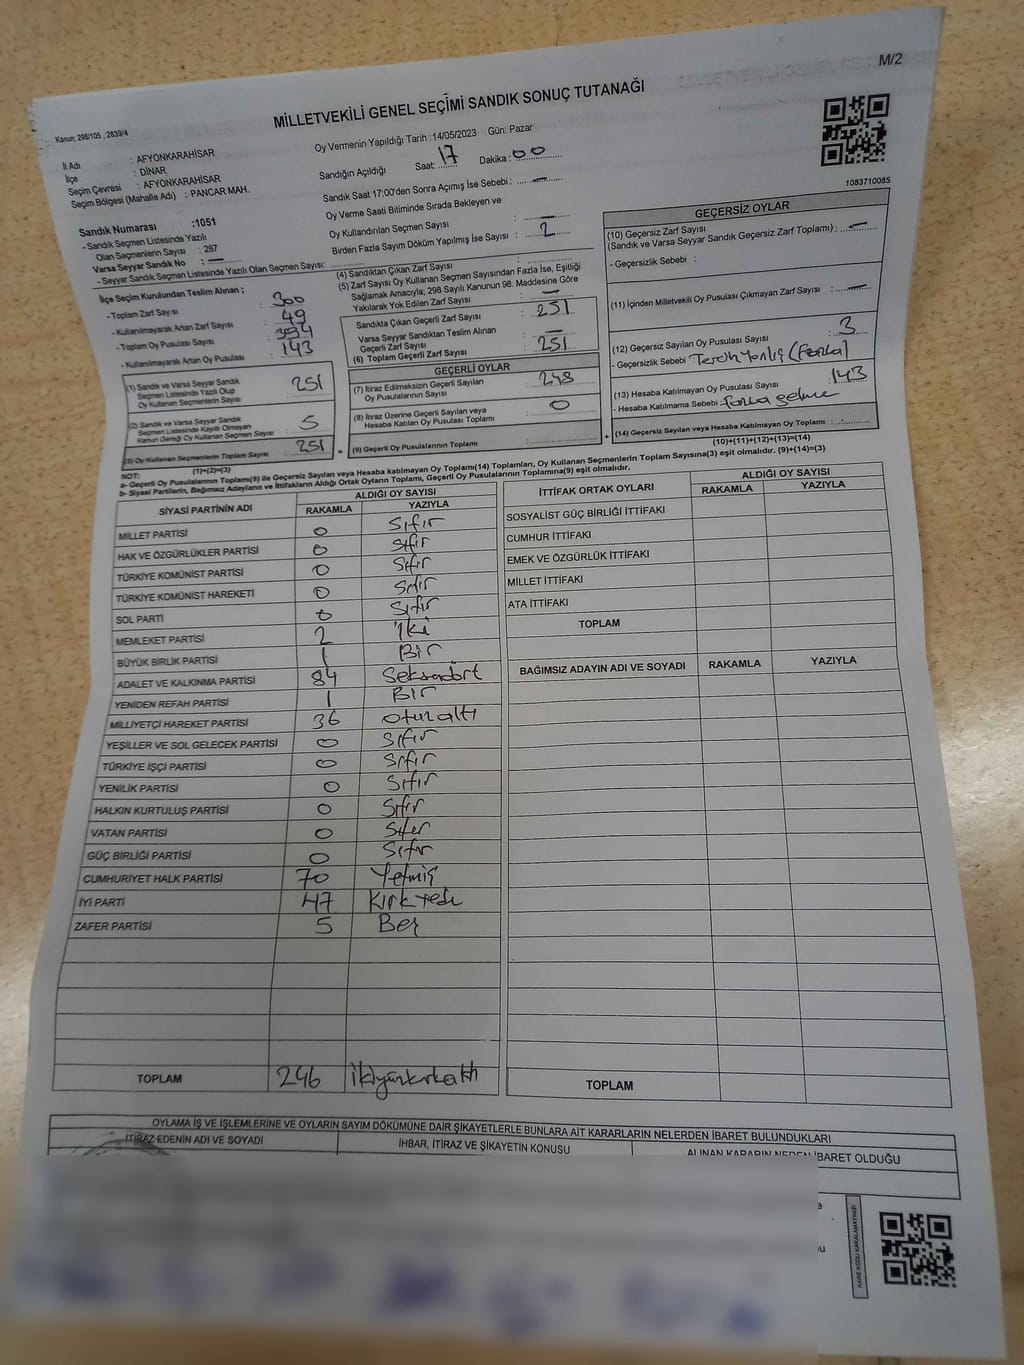 M/2
MİLLETVEKİLİ GENEL SEÇİMİ SANDIK SONUÇ TUTANAĞI
Kanun; 298/105 , 2839/4
İl Adı : AFYONKARAHİSAR
İlçe : DİNAR
Seçim Çevresi : AFYONKARAHİSAR
Seçim Bölgesi (Mahalle Adı) : PANCAR MAH.
Sandık Numarası :1051
- Sandık Seçmen Listesinde Yazılı
Olan Seçmenlerin Sayısı : 287
Varsa Seyyar Sandık No : —
- Seyyar Sandık Seçmen Listesinde Yazılı Olan Seçmen Sayısı:
Oy Vermenin Yapıldığı Tarih :14/05/2023 Gün: Pazar
Sandığın Açıldığı Saat: 17 Dakika: 00
Sandık Saat 17:00'den Sonra Açımış İse Sebebi : —
Oy Verme Saati Bitiminde Sırada Bekleyen ve
Oy Kullandırılan Seçmen Sayısı : —
Birden Fazla Sayım Döküm Yapılmış İse Sayısı : 2
1083710085
İlçe Seçim Kurulundan Teslim Alınan ;
- Toplam Zarf Sayısı : 300
- Kullanılmayarak Artan Zarf Sayısı : 49
- Toplam Oy Pusulası Sayısı : 394
- Kullanılmayarak Artan Oy Pusulası : 143
(1) Sandık ve Varsa Seyyar Sandık
Seçmen Listesinde Yazılı Olup
Oy Kullanan Seçmenlerin Sayısı : 251
(2) Sandık ve Varsa Seyyar Sandık
Seçmen Listesinde Kayıtlı Olmayan
Kanun Gereği Oy Kullanan Seçmen Sayısı : 5
(3) Oy Kullanan Seçmenlerin Toplam Sayısı : 251
(1)+(2)=(3)
(4) Sandıktan Çıkan Zarf Sayısı :
(5) Zarf Sayısı Oy Kullanan Seçmen Sayısından Fazla İse, Eşitliği
Sağlamak Amacıyla; 298 Sayılı Kanunun 98. Maddesine Göre
Yakılarak Yok Edilen Zarf Sayısı : —
Sandıkta Çıkan Geçerli Zarf Sayısı : 251
Varsa Seyyar Sandıktan Teslim Alınan
Geçerli Zarf Sayısı : —
(6) Toplam Geçerli Zarf Sayısı : 251
GEÇERLİ OYLAR
(7) İtiraz Edilmeksizin Geçerli Sayılan
Oy Pusulalarının Sayısı : 248
(8) İtiraz Üzerine Geçerli Sayılan veya
Hesaba Katılan Oy Pusulası Toplamı : 0
(9) Geçerli Oy Pusulalarının Toplamı :
GEÇERSİZ OYLAR
(10) Geçersiz Zarf Sayısı
(Sandık ve Varsa Seyyar Sandık Geçersiz Zarf Toplamı) : —
- Geçersizlik Sebebi :
(11) İçinden Milletvekili Oy Pusulası Çıkmayan Zarf Sayısı : —
(12) Geçersiz Sayılan Oy Pusulası Sayısı : 3
- Geçersizlik Sebebi
(13) Hesaba Katılmayan Oy Pusulası Sayısı : 143
- Hesaba Katılmama Sebebi :
(14) Geçersiz Sayılan veya Hesaba Katılmayan Oy Toplamı :
(10)+(11)+(12)+(13)=(14)
NOT:
a- Geçerli Oy Pusulalarının Toplamı(9) ile Geçersiz Sayılan veya Hesaba katılmayan Oy Toplamı(14) Toplamları, Oy Kullanan Seçmenlerin Toplam Sayısına(3) eşit olmalıdır. (9)+(14)=(3)
b- Siyasi Partilerin, Bağımsız Adayların ve İttifakların Aldığı Ortak Oyların Toplamı, Geçerli Oy Pusulalarının Toplamına(9) eşit olmalıdır.
SİYASİ PARTİNİN ADI ALDIĞI OY SAYISI
RAKAMLA YAZIYLA
MİLLET PARTİSİ 0 Sıfır
HAK VE ÖZGÜRLÜKLER PARTİSİ 0 Sıfır
TÜRKİYE KOMÜNİST PARTİSİ 0 Sıfır
TÜRKİYE KOMÜNİST HAREKETİ 0 Sıfır
SOL PARTİ 0 Sıfır
MEMLEKET PARTİSİ 2 İki
BÜYÜK BİRLİK PARTİSİ 1 Bir
ADALET VE KALKINMA PARTİSİ 84 Seksendört
YENİDEN REFAH PARTİSİ 1 Bir
MİLLİYETÇİ HAREKET PARTİSİ 36 otuzaltı
YEŞİLLER VE SOL GELECEK PARTİSİ 0 Sıfır
TÜRKİYE İŞÇİ PARTİSİ 0 Sıfır
YENİLİK PARTİSİ 0 Sıfır
HALKIN KURTULUŞ PARTİSİ 0 Sıfır
VATAN PARTİSİ 0 Sıfır
GÜÇ BİRLİĞİ PARTİSİ 0 Sıfır
CUMHURİYET HALK PARTİSİ 70 Yetmiş
İYİ PARTİ 47 Kırk yedi
ZAFER PARTİSİ 5 Beş
TOPLAM 246 ikiyüzkırkaltı
İTTİFAK ORTAK OYLARI ALDIĞI OY SAYISI
RAKAMLA YAZIYLA
SOSYALİST GÜÇ BİRLİĞİ İTTİFAKI
CUMHUR İTTİFAKI
EMEK VE ÖZGÜRLÜK İTTİFAKI
MİLLET İTTİFAKI
ATA İTTİFAKI
TOPLAM
BAĞIMSIZ ADAYIN ADI VE SOYADI RAKAMLA YAZIYLA
TOPLAM
OYLAMA İŞ VE İŞLEMLERİNE VE OYLARIN SAYIM DÖKÜMÜNE DAİR ŞİKAYETLERLE BUNLARA AİT KARARLARIN NELERDEN İBARET BULUNDUKLARI
İTİRAZ EDENİN ADI VE SOYADI İHBAR, İTİRAZ VE ŞİKAYETİN KONUSU ALINAN KARARIN NEDEN İBARET OLDUĞU